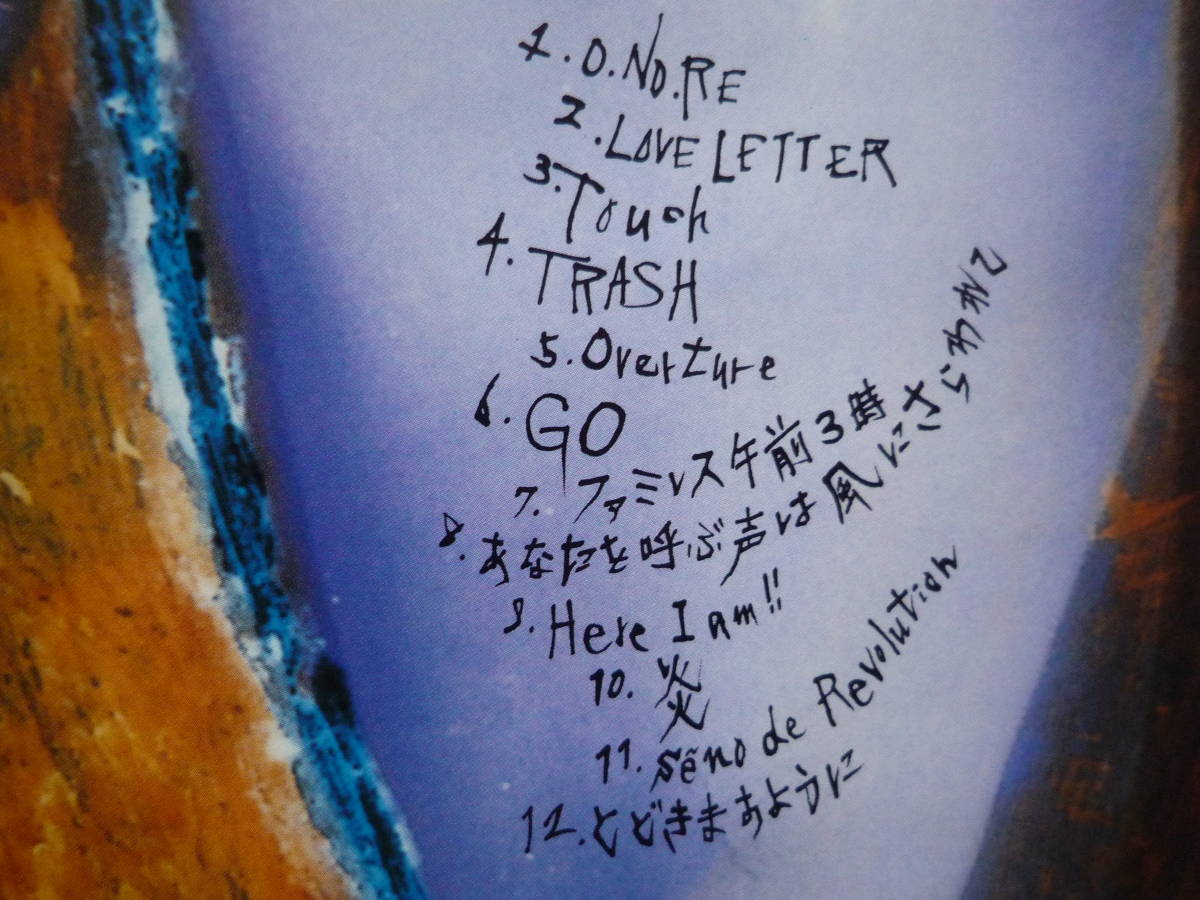 1. O.NO.RE
2. LOVE LETTER
3. Touch
4. TRASH
5. Overture
6. GO
7. ファミレス午前3時
8. あなたを呼ぶ声は風にさらわれて
9. Here I am!!
10. 炎
11. sēno de Revolution
12. とどきますように